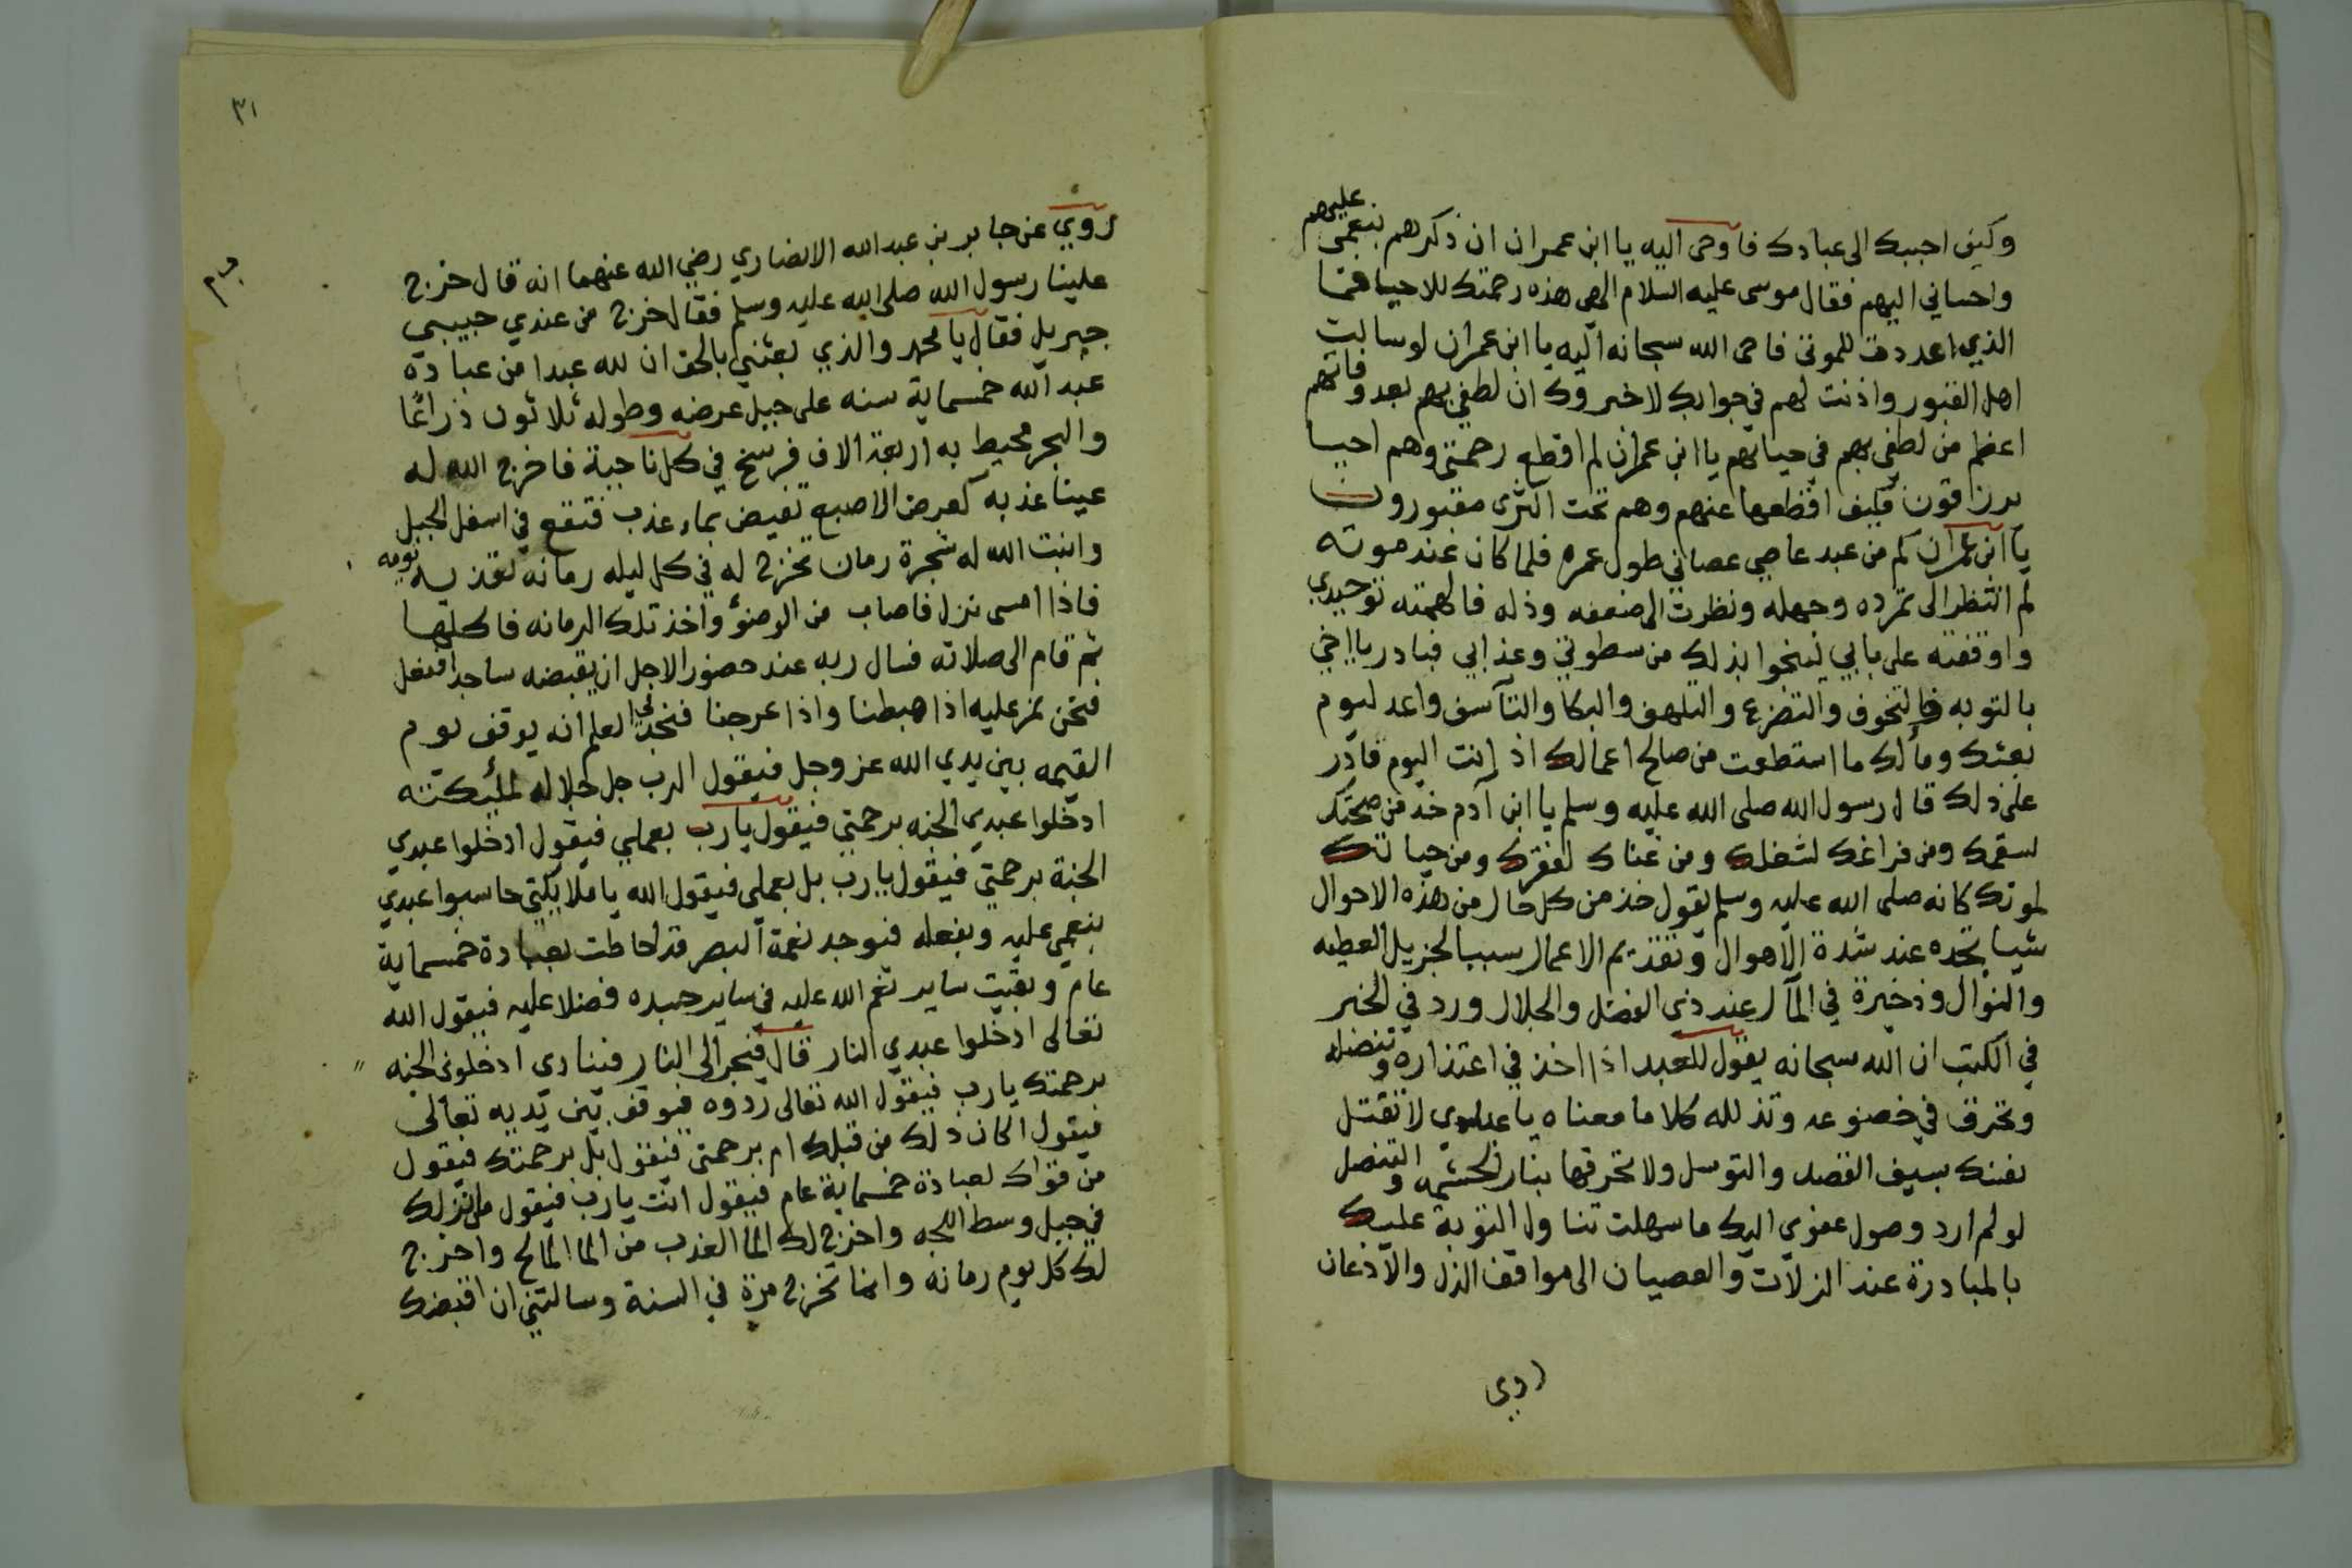 وكيف احببك الى عبادك فاوحى اليه يا ابن عمران ان ذكرهم بنعمى عليهم
واحساني اليهم فقال موسى عليه السلام الهي هذه رحمتك للاحيا فما
الذي اعددت للموتى فاحى الله سبحانه اليه يا ابن عمران لو سالت
اهل القبور واذنت لهم في جوابك لاخبروك ان لطفي بهم بعد وفاتهم
اعظم من لطفي بهم في حياتهم يا ابن عمران لم اقطع رحمتى وهم احيا
يرزقون فكيف اقطعها عنهم وهم تحت الثرى مقبورون
يا ابن عمران كم من عبد عاصي عصاني طول عمره فلما كان عند موته
لم انظر الى تمرده وجهله ونظرت الى ضعفه وذله فالهمته توحيدي
واوقفته على بابي لينجوا بذلك من سطوتي وعذابي فبادر يا اخي
بالتوبه والتخوف والتضرع والتلهف والبكا والتأسف واعد ليوم
بعثك ومألك ما استطعت من صالح اعمالك اذ انت اليوم قادر
على ذلك قال رسول الله صلى الله عليه وسلم يا ابن آدم خذ من صحتك
لسقمك ومن فراغك لشغلك ومن غناك لفقرك ومن حياتك
لموتك كانه صلى الله عليه وسلم يقول خذ من كل حال من هذه الاحوال
شيا تجده عند شدة الاهوال وتقديم الاعمال سببا لجزيل العطيه
والنوال وذخيرة في المآل عند ذي الفضل والجلال ورد في الخبر
في الكتب ان الله سبحانه يقول للعبد اذا اخذ في اعتذاره وتنصله
وتحرق في خضوعه وتذلله كلاما معناه يا عبدي لا تقتل
نفسك بسيف القصد والتوسل ولا تحرقها بنار الحشمه والتنصل
لو لم ارد وصول عفوي اليك ما سهلت تناول التوبة عليك
بالمبادرة عند الزلات والعصيان الى مواقف الذل والاذعان
روي
٣١
روي عن جابر بن عبد الله الانصاري رضي الله عنهما انه قال خرج
علينا رسول الله صلى الله عليه وسلم فقال خرج من عندي حبيبي
جبريل فقال يا محمد والذي بعثني بالحق ان لله عبدا من عباده
عبد الله خمسماية سنه على جبل عرضه وطوله ثلاثون ذراعا
والبحر محيط به اربعة الاف فرسخ في كل ناحية فاخرج الله له
عينا عذبه كعرض الاصبع تفيض بماء عذب فتقع في اسفل الجبل
وانبت الله له شجرة رمان تخرج له في كل ليله رمانه تغذيه يومه
فاذا امسى نزل فاصاب من الوضؤ واخذ تلك الرمانه فاكلها
ثم قام الى صلاته فسال ربه عند حضور الاجل ان يقبضه ساجدا ففعل
فنحن نمر عليه اذا هبطنا واذا عرجنا فنجد في العلم انه يوقف يوم
القيمه بين يدي الله عز وجل فيقول الرب جل جلاله لمليكته
ادخلوا عبدي الجنه برحمتي فيقول يا رب بعملي فيقول ادخلوا عبدي
الجنة برحمتي فيقول يا رب بل بعملي فيقول الله يا ملايكتي حاسبوا عبدي
بنعمي عليه وبفعله فيوجد نعمة البصر قد احاطت بعبادة خمسماية
عام وبقيت ساير نعم الله عليه في ساير جسده فضلا عليه فيقول الله
تعالى ادخلوا عبدي النار قال فيجر الى النار فينادى ادخلونى الجنه
برحمتك يا رب فيقول الله تعالى ردوه فيوقف بين يديه تعالى
فيقول اكان ذلك من قبلك ام برحمتى فيقول بل برحمتك فيقول
من قواك لعبادة خمسماية عام فيقول انت يا رب فيقول من انزلك
في جبل وسط اللجه واخرج لك الما العذب من الما المالح واخرج
لك كل يوم رمانه وانما تخرج مرة في السنة وسالتني ان اقبضك